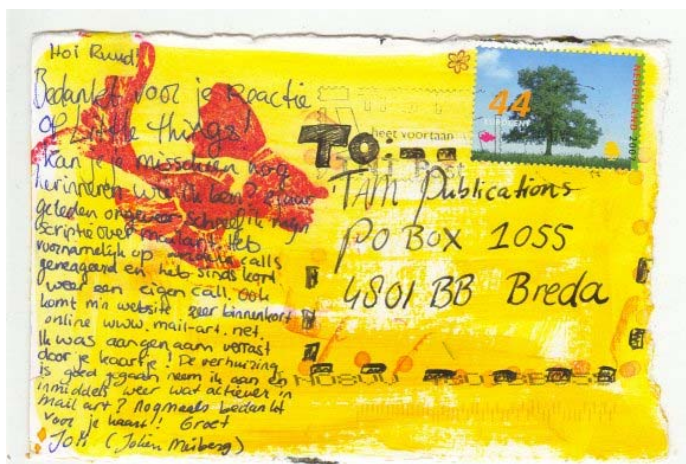 Hoi Ruud!
Bedankt voor je reactie
op Little things!
Kan je je misschien nog
herinneren wie ik ben? 2 jaar
geleden ongeveer schreef ik mijn
scriptie over mailart. Heb
voornamelijk op calls
gereageerd en heb sinds kort
weer een eigen call. Ook
komt m'n website zeer binnenkort
online www.mail-art.net.
Ik was aangenaam verrast
door je kaartje! De verhuizing
is goed gegaan neem ik aan en
inmiddels weer wat actiever in
mail art? Nogmaals bedankt
voor je kaart!! Groet
JoM (Jolien Meiberg)
44
EUROCENT
NEDERLAND
heet voortaan
Post
TO:
TAM Publications
PO BOX 1055
4801 BB Breda